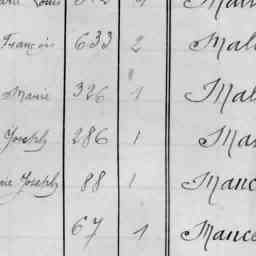 Louis
François 633 2 Mal
Marie 326 1 Mal
Joseph 286 1 Ma
Joseph 88 1 Manc
67 1 Mance